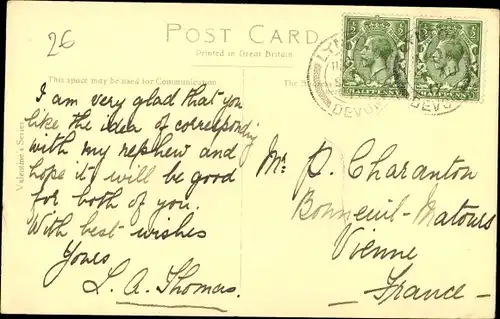 26
POST CARD
Printed in Great Britain
This space may be used for Communication
The Address
Valentine's Series
I am very glad that you
like the idea of corresponding
with my nephew and
hope it will be good
for both of you.
With best wishes
Yours
L. A. Thomas.
DEVON
DEVO
HALFPENNY
Mr P. Charanton
Bonneuil-Matours
Vienne
France